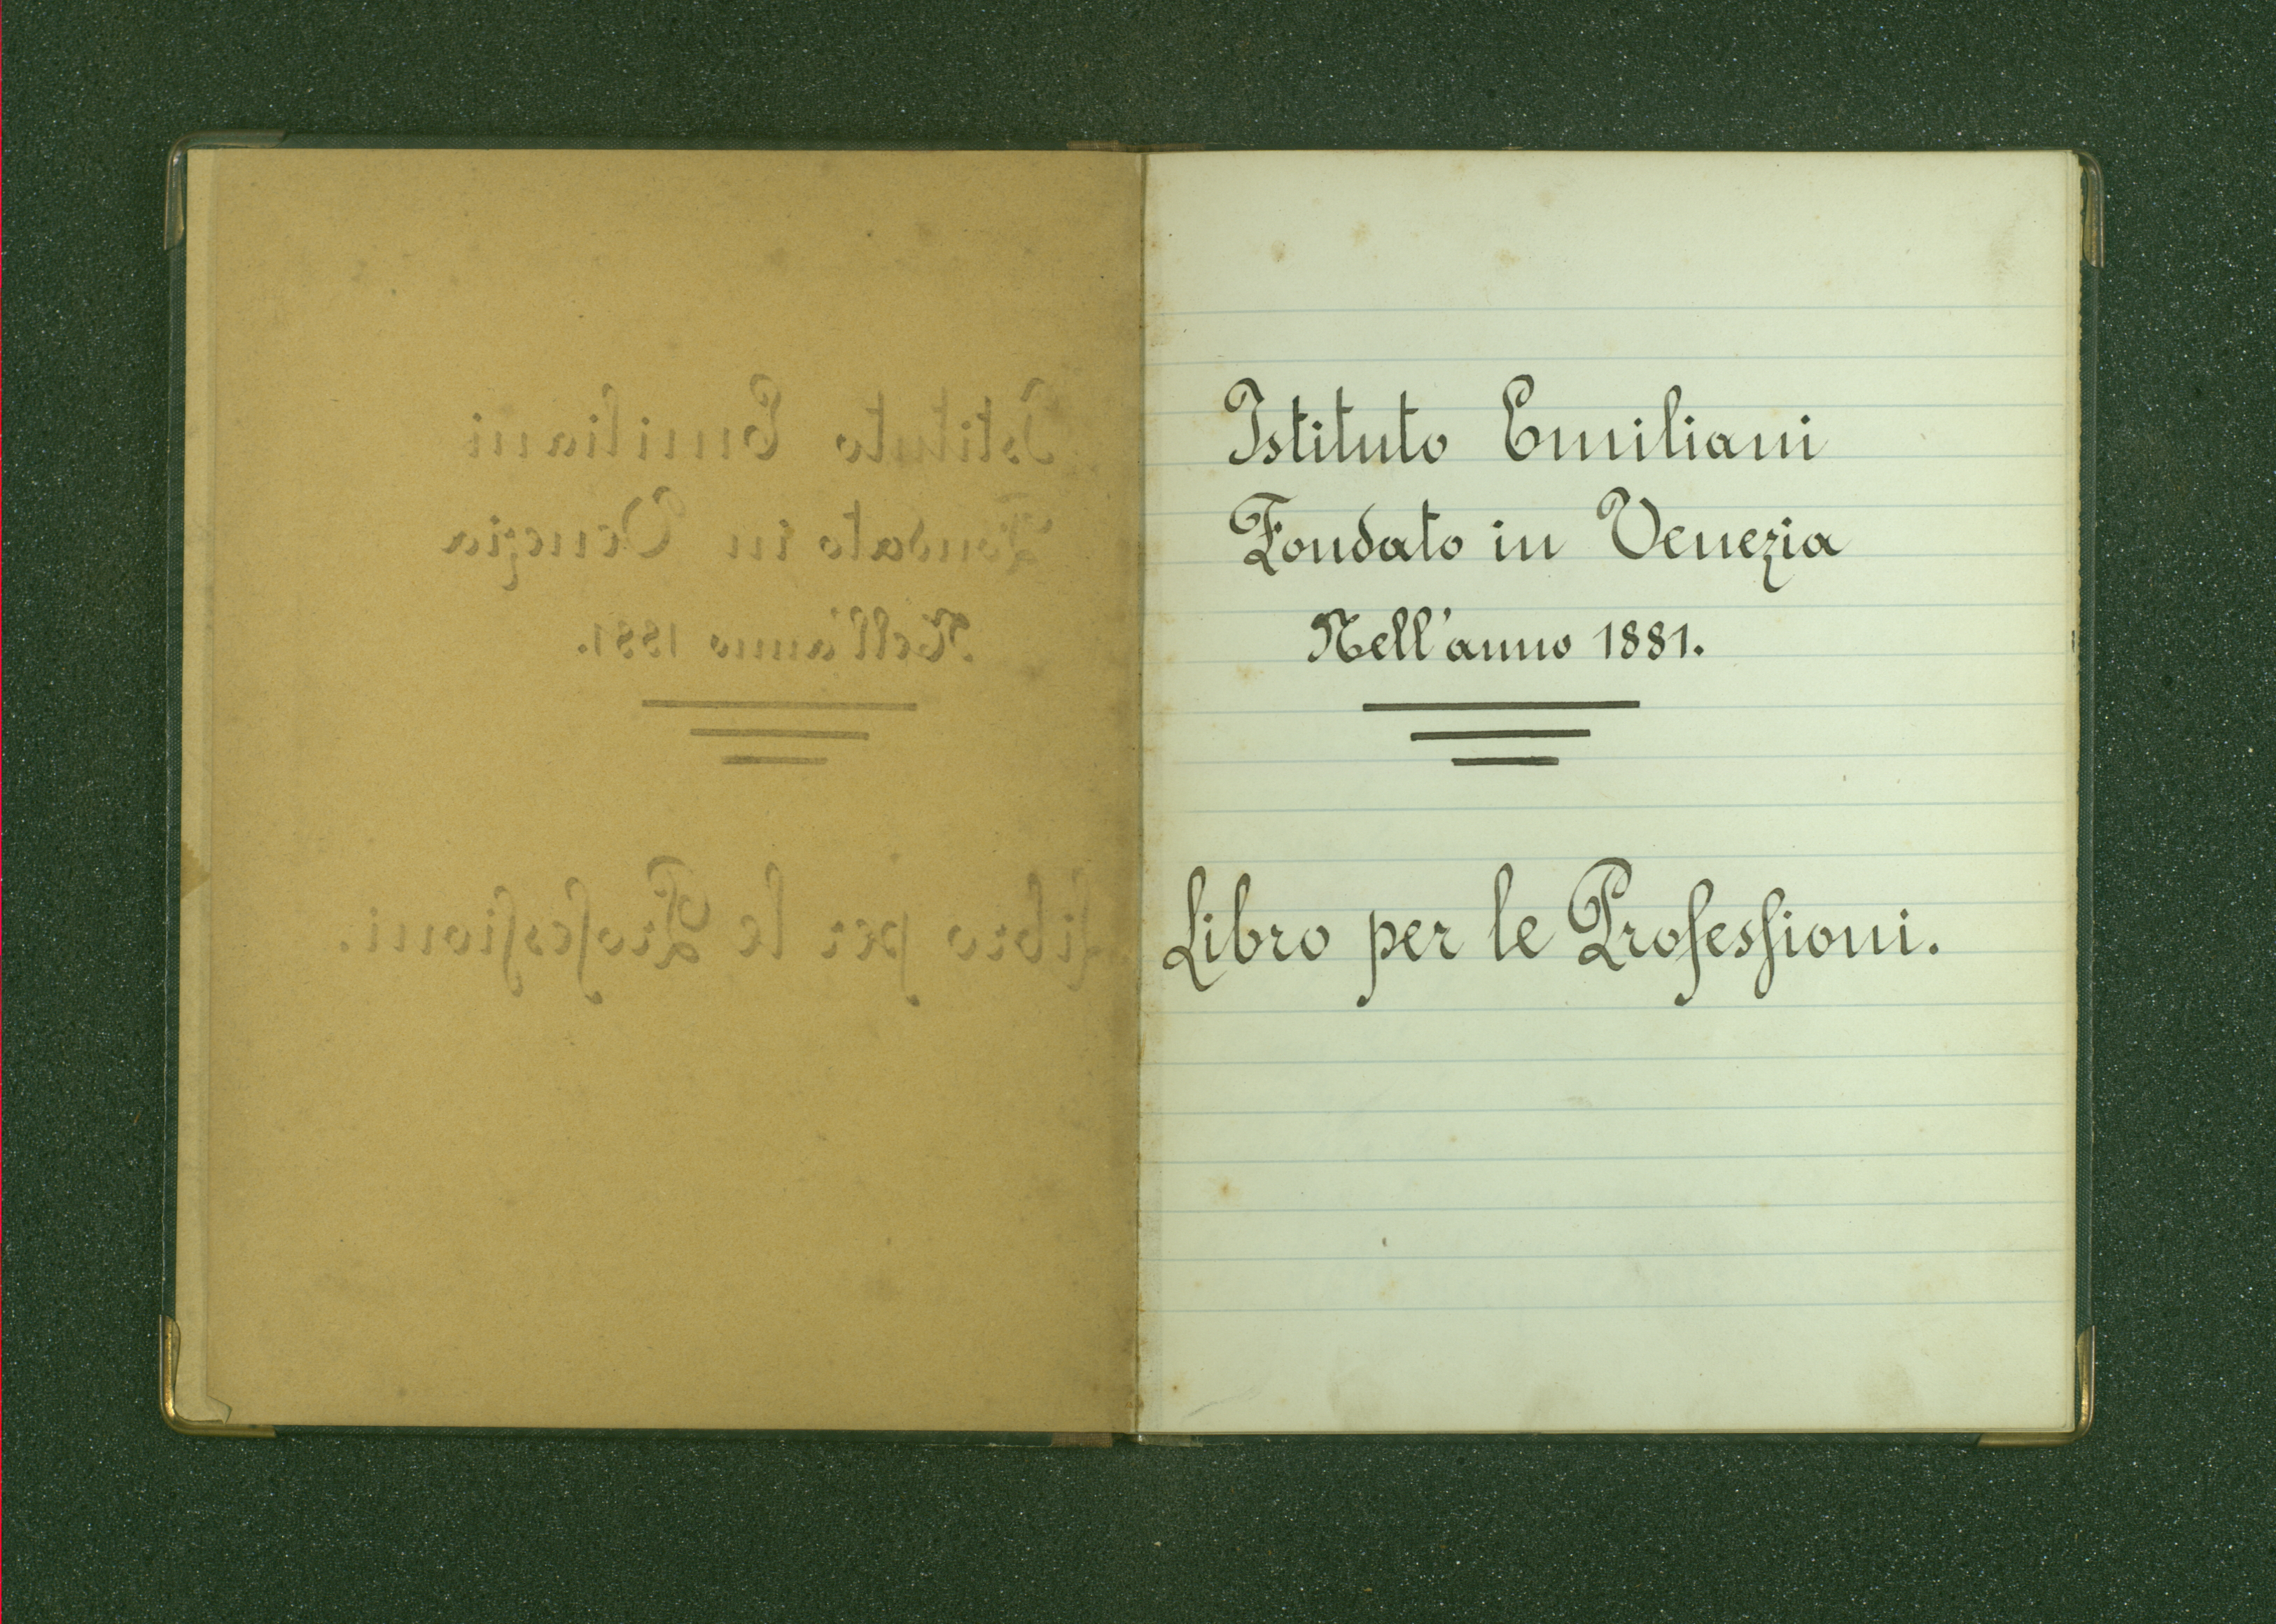 Istituto Emiliani
Fondato in Venezia
Nell'anno 1881.
Libro per le Professioni.